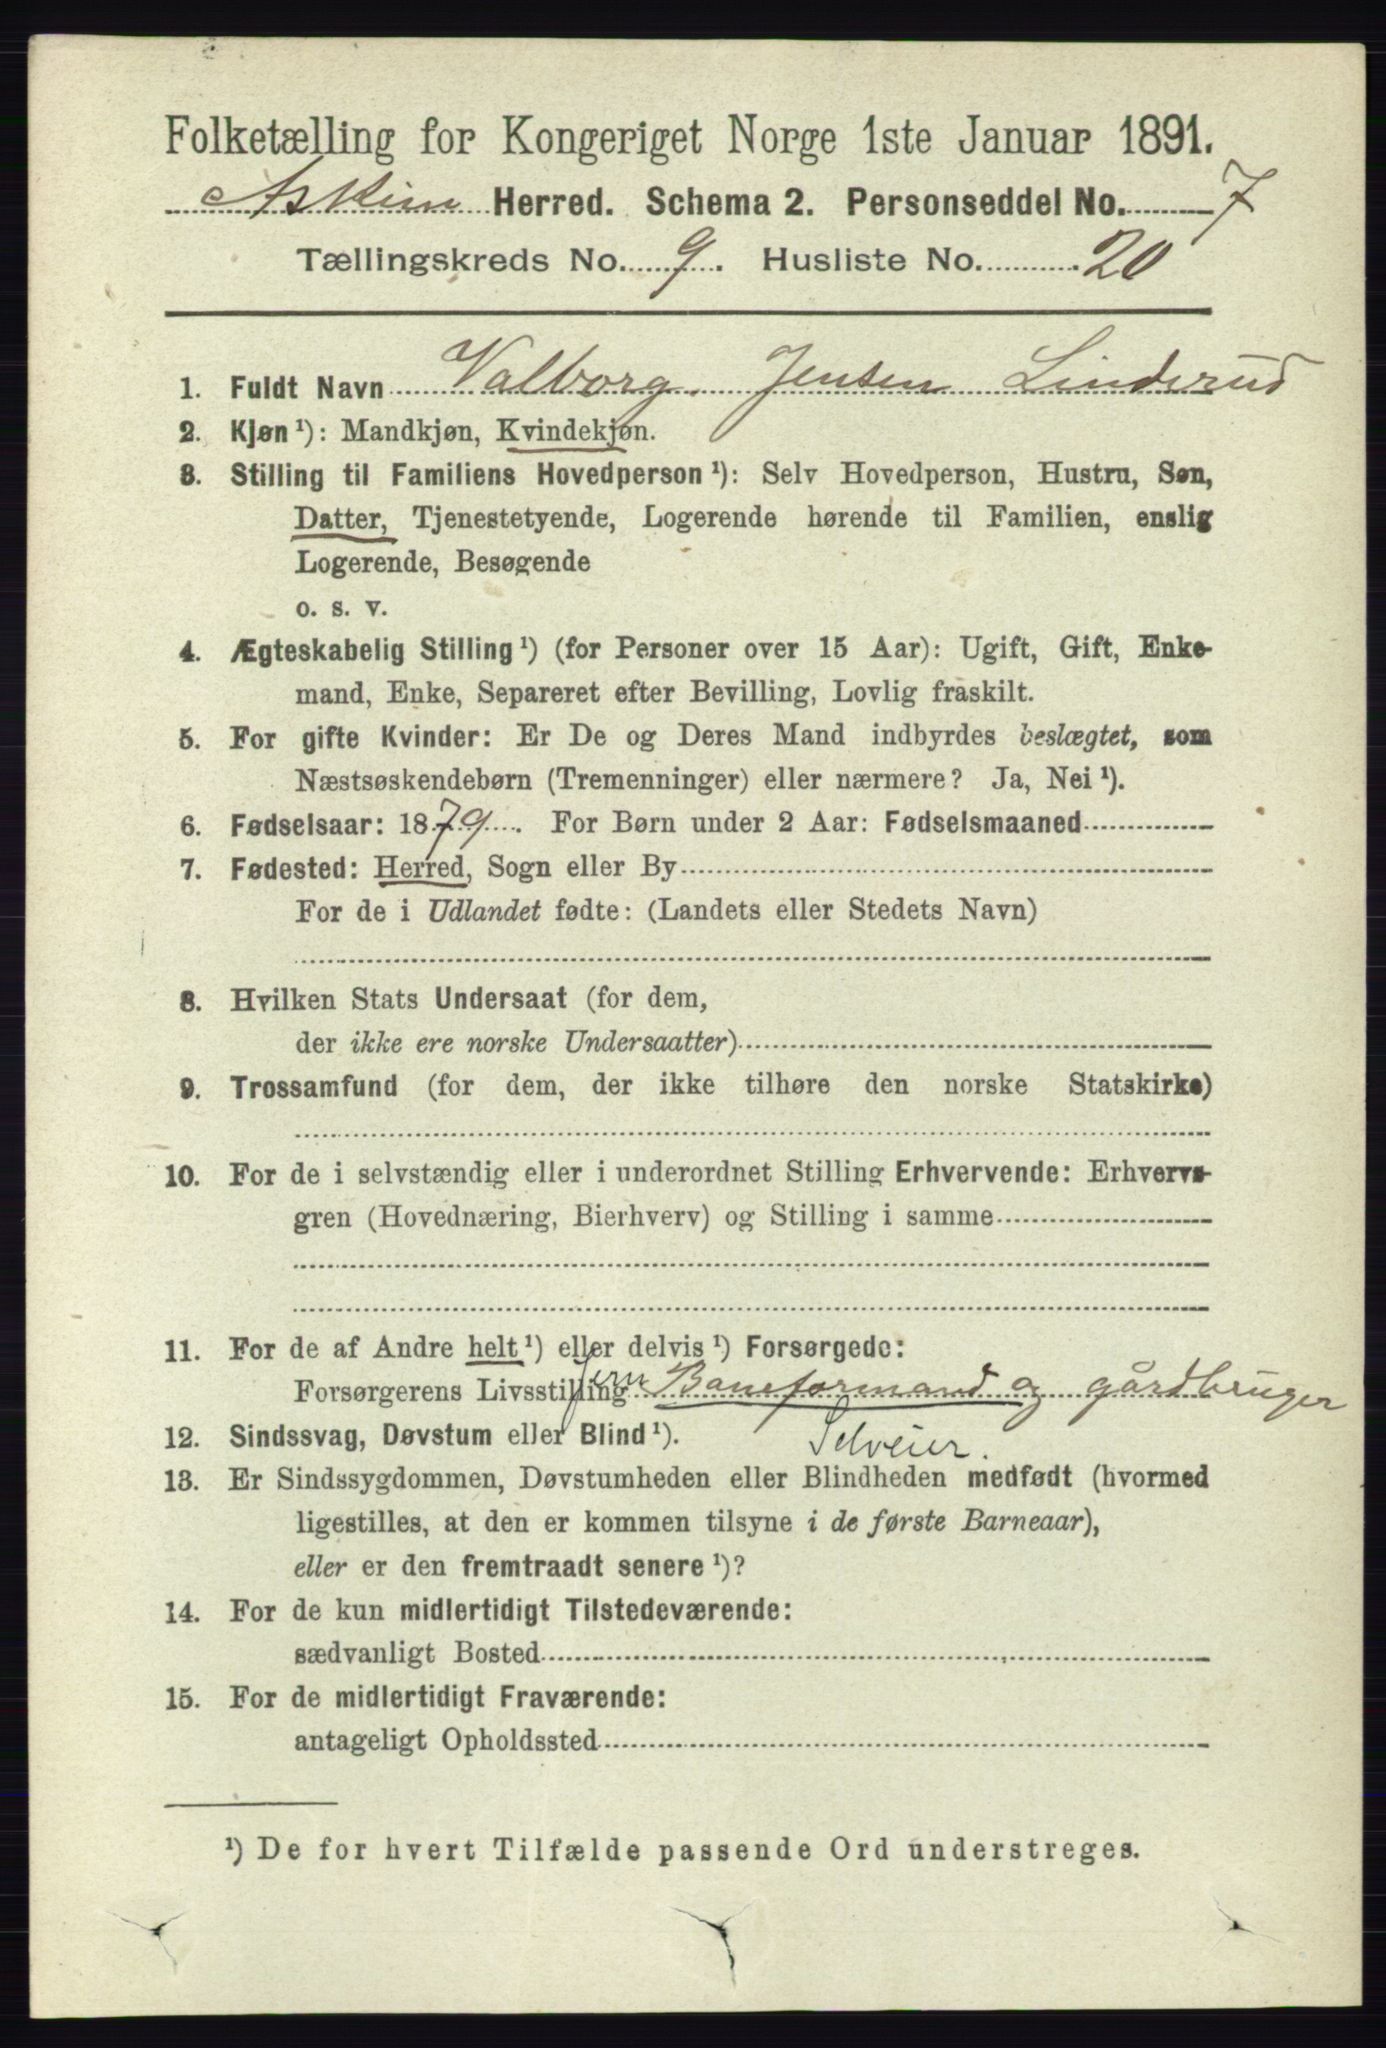 Folketælling for Kongeriget Norge 1ste Januar 1891.
Askim Herred. Schema 2. Personseddel No. 7
Tællingskreds No. 9. Husliste No. 20
1. Fuldt Navn Valborg Jensen Linderud
2. Kjøn ¹): Mandkjøn, Kvindekjøn.
3. Stilling til Familiens Hovedperson ¹): Selv Hovedperson, Hustru, Søn,
Datter, Tjenestetyende, Logerende hørende til Familien, enslig
Logerende, Besøgende
o. s. v.
4. Ægteskabelig Stilling ¹) (for Personer over 15 Aar): Ugift, Gift, Enke-
mand, Enke, Separeret efter Bevilling, Lovlig fraskilt.
5. For gifte Kvinder: Er De og Deres Mand indbyrdes beslægtet, som
Næstsøskendebørn (Tremenninger) eller nærmere? Ja, Nei ¹).
6. Fødselsaar: 1879. For Børn under 2 Aar: Fødselsmaaned
7. Fødested: Herred, Sogn eller By
For de i Udlandet fødte: (Landets eller Stedets Navn)
8. Hvilken Stats Undersaat (for dem,
der ikke ere norske Undersaatter)
9. Trossamfund (for dem, der ikke tilhøre den norske Statskirke)
10. For de i selvstændig eller i underordnet Stilling Erhvervende: Erhvervs-
gren (Hovednæring, Bierhverv) og Stilling i samme
11. For de af Andre helt ¹) eller delvis ¹) Forsørgede:
Forsørgerens Livsstilling Jern Baneformand og gårdbruger
Selveier.
12. Sindssvag, Døvstum eller Blind ¹).
13. Er Sindssygdommen, Døvstumheden eller Blindheden medfødt (hvormed
ligestilles, at den er kommen tilsyne i de første Barneaar),
eller er den fremtraadt senere ¹)?
14. For de kun midlertidigt Tilstedeværende:
sædvanligt Bosted
15. For de midlertidigt Fraværende:
antageligt Opholdssted
¹) De for hvert Tilfælde passende Ord understreges.